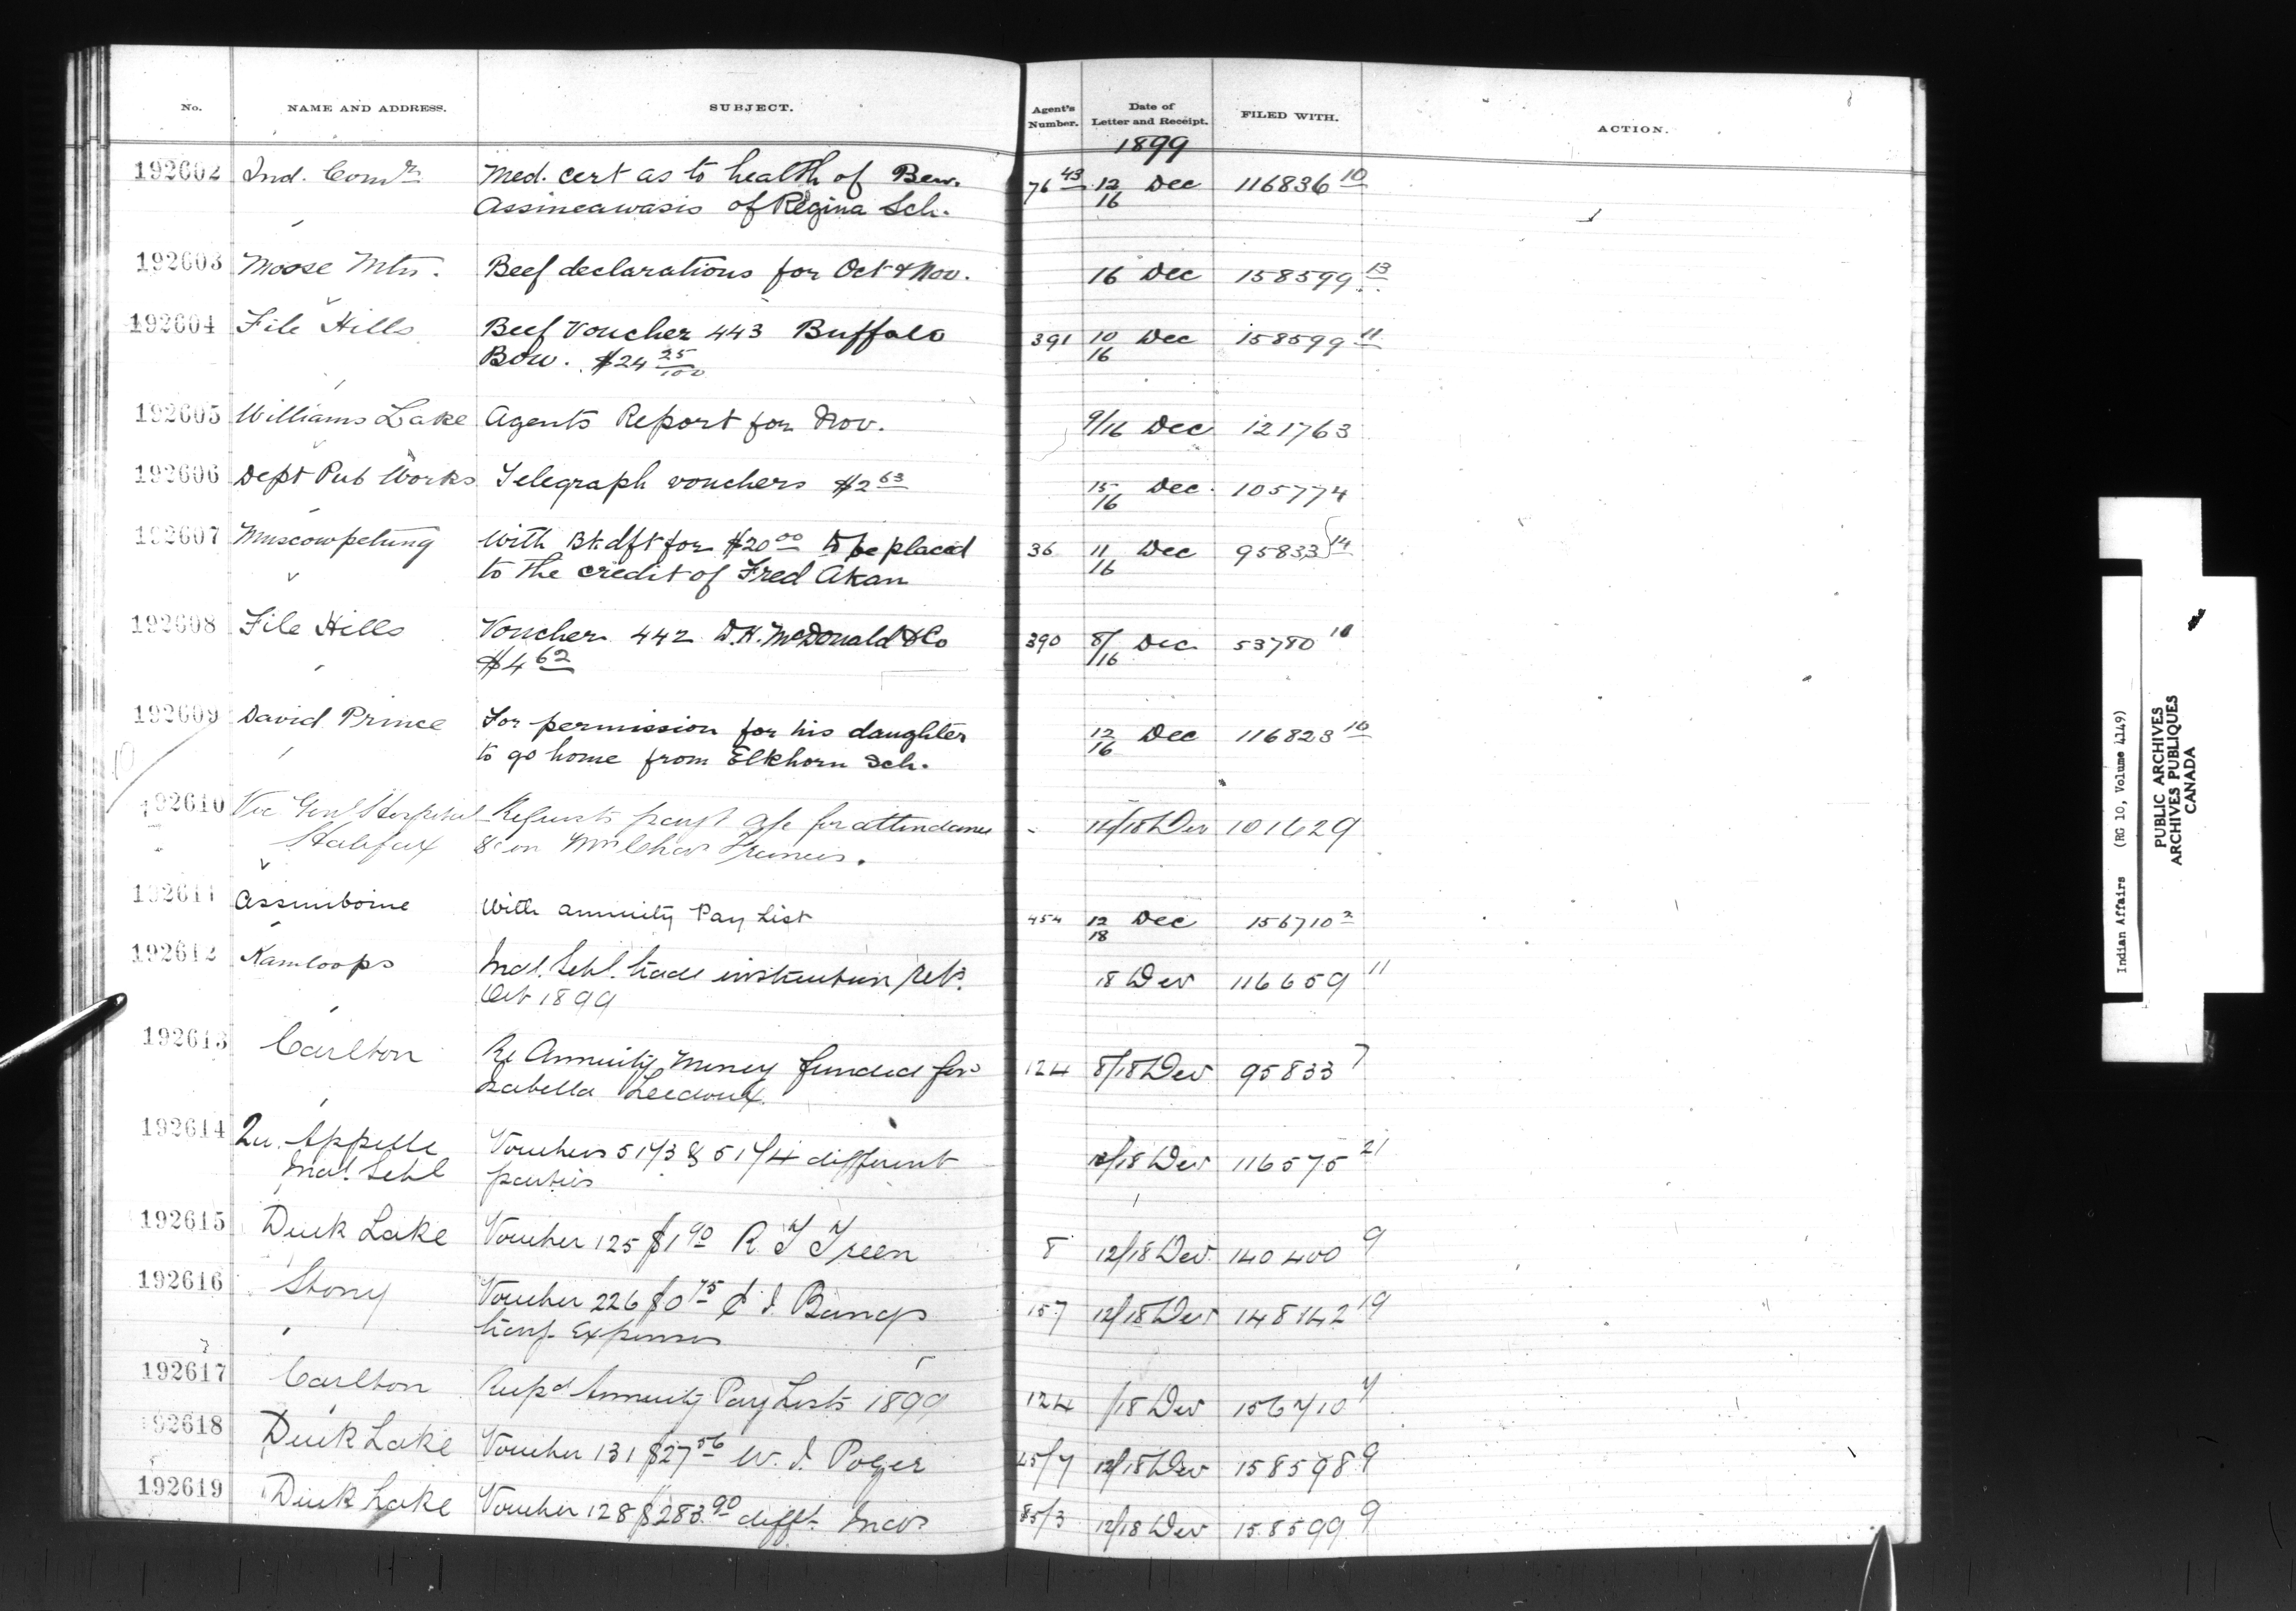 No. NAME AND ADDRESS. SUBJECT. Agent's Number. Date of Letter and Receipt. FILED WITH. ACTION.
1899
192602 Ind. Comr Med. cert as to health of Ben. 76 43 12/16 Dec 116836 10
Assineawasis of Regina Sch.
192603 Moose Mtn. Beef declarations for Oct & Nov. 16 Dec 158599 13
192604 File Hills Beef Voucher 443 Buffalo 391 10/16 Dec 158599 11
Bow. $24 25/100
192605 Williams Lake Agents Report for Nov. 9/16 Dec 121763
192606 Dept Pub Works Telegraph vouchers $2 63 15/16 Dec. 105774
192607 Muscowpetung With Bk dft for $20 00 to be placed 36 11/16 Dec 95833 14
to the credit of Fred Akan
192608 File Hills Voucher 442 D.H. McDonald & Co 390 8/16 Dec 53780
$4 62
192609 David Prince For permission for his daughter 12/16 Dec 116823 10
to go home from Elkhorn Sch.
192610 Vic Genl Hospital Requests payt a/c for attendance 14/18 Dec 101629
Halifax &c on Mrs Chas Francis.
192611 Assiniboine With annuity Pay List 454 12/18 Dec 156710 2
192612 Kamloops Indl. Schl. trade instruction ret. 18 Dec 116659 11
Oct 1899
192613 Carlton Re Annuity Money funded for 124 8/18 Dec 95833 7
Isabella Leedoux.
192614 Qu. Appelle Vouchers 51/3 & 51/4 different /18 Dec 116575 21
Indl. Schl parties
192615 Duck Lake Voucher 125 $1 90 R 8 12/18 Dec 140400 9
192616 Stony Voucher 226 $0 75 Bangs 157 12/18 Dec 148142 19
Expenses
192617 Carlton Annuity Pay Lists 1899 124 /18 Dec 156710
192618 Duck Lake Voucher 131 $27 56 W. J. 12/18 Dec 158598 9
192619 Duck Lake Voucher 128 $283.90 difft. Inds 85/3 12/18 Dec 158599 9
Indian Affairs (RG 10, Volume 4149)
PUBLIC ARCHIVES
ARCHIVES PUBLIQUES
CANADA